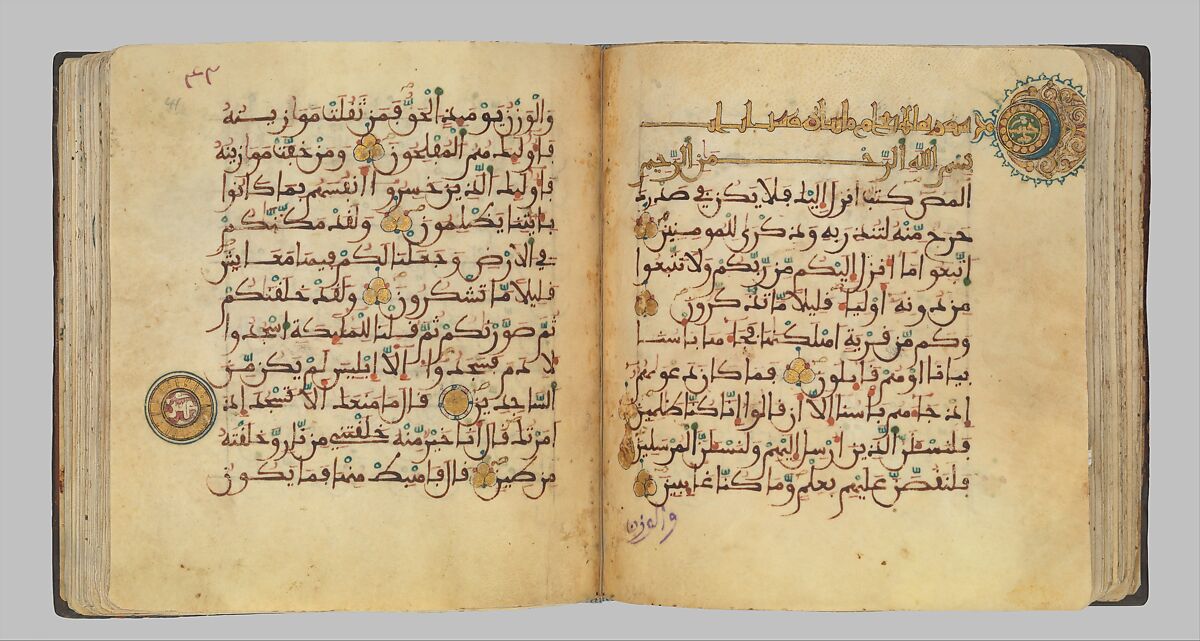 سورة الاعراف مايتان
بسم الله الرحمن الرحيم
المص كتب انزل اليك فلا يكن في صدرك
حرج منه لتنذر به وذكرى للمومنين
اتبعوا ما انزل اليكم من ربكم ولا تتبعوا
من دونه اولياء قليلا ما تذكرون
وكم من قرية اهلكنها فجاءها باسنا
بياتا او هم قايلون فما كان دعويهم
اذ جاءهم باسنا الا ان قالوا انا كنا ظلمين
فلنسئلن الذين ارسل اليهم ولنسئلن المرسلين
فلنقصن عليهم بعلم وما كنا غايبين
والوزن
٣٣
41
والوزن يوميذ الحق فمن ثقلت موازينه
فاوليك هم المفلحون ومن خفت موازينه
فاوليك الذين خسروا انفسهم بما كانوا
بايتنا يظلمون ولقد مكنكم
في الارض وجعلنا لكم فيها معايش
قليلا ما تشكرون ولقد خلقنكم
ثم صورنكم ثم قلنا للمليكة اسجدوا
لادم فسجدوا الا ابليس لم يكن من
السجدين قال ما منعك الا تسجد اذ
امرتك قال انا خير منه خلقتني من نار وخلقته
من طين قال فاهبط منها فما يكون